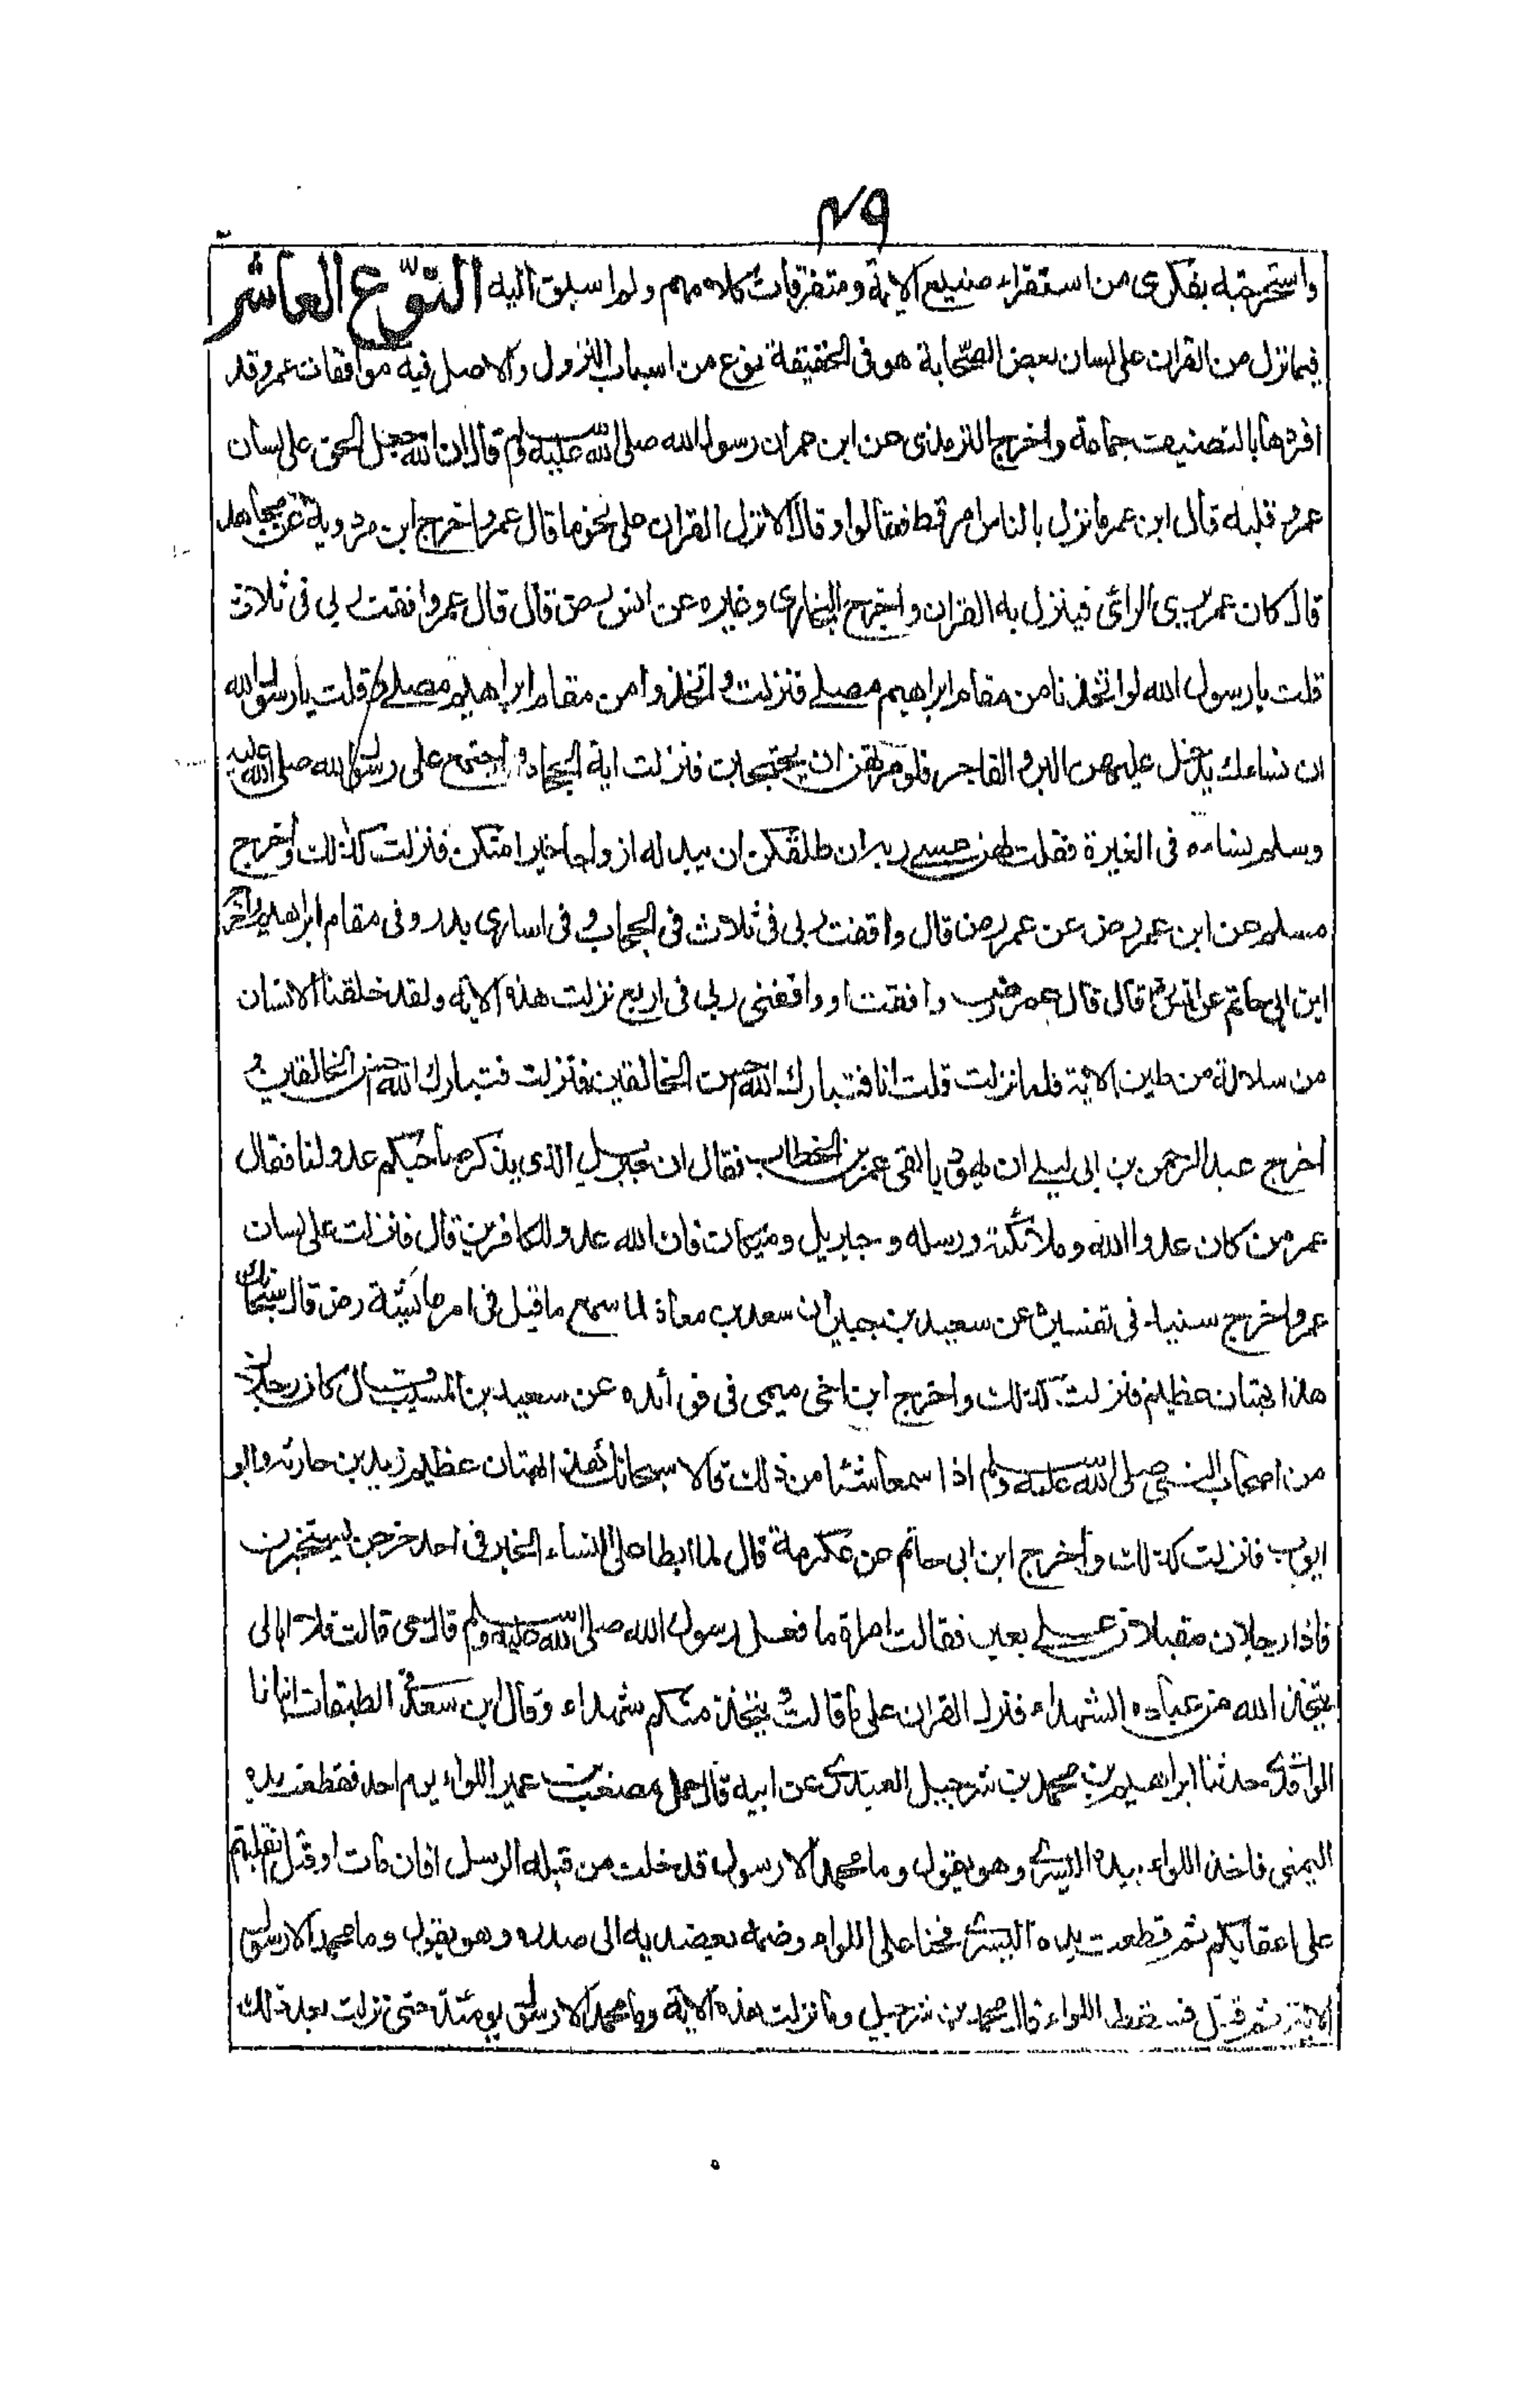 ٧٩
واستخرجته بفكرى من استقراء صنيع الايمة ومتفرقات كلامهم ولم اسبق اليه النوّع العاشر
فيما نزل من القران على لسان بعض الصّحابة هو فى الحقيقة نوع من اسباب النزول والاصل فيه موافقات عمر وقد
افردها بالتصنيف جماعة واخرج الترمذى عن ابن عمر ان رسول الله صلى الله عليه ولم قال ان الله جعل الحق على لسان
عمر و قلبه قال ابن عمر ما نزل بالناس امر قط فقالوا و قال الا نزل القران على نحو ما قال عمر و اخرج ابن مردوية عن مجاهد
قال كان عمر يرى الراى فينزل به القران و اخرج البخارى و غيره عن انس رض قال قال عمر وافقت ربى فى ثلاث
قلت يا رسول الله لو اتخذنا من مقام ابراهيم مصلے فنزلت و اتخذوا من مقام ابراهيم مصلے و قلت يا رسول الله
ان نساءك يدخل عليهن البر و الفاجر فلو امرتهن ان يحتجبن فنزلت اية الحجاب و اجتمع على رسول الله صلى الله عليه
وسلم نساءه فى الغيرة فقلت لهن عسے ربه ان طلقكن ان يبدله ازواجا خيرا منكن فنزلت كذلك و اخرج
مسلم عن ابن عمر رض عن عمر رض قال وافقت ربى فى ثلاث فى الحجاب و فى اسارى بدر و فى مقام ابراهيم واخرج
ابن ابى حاتم عن انس قال قال عمر رض وافقت او وافقنى ربى فى اربع نزلت هذه الاية ولقد خلقنا الانسان
من سلالة من طين الاية فلما نزلت قلت انا فتبارك الله احسن الخالقين فنزلت فتبارك الله احسن الخالقين و
اخرج عبد الرحمن بن ابى ليلے ان يهوديا لقى عمر بن الخطاب فقال ان جبريل الذى يذكر صاحبكم عدو لنا فقال
عمر من كان عدوا الله و ملائكته و رسله و جبريل و ميكال فان الله عدو للكافرين قال فنزلت على لسان
عمر واخرج سنيد فى تفسيره عن سعيد بن جبير ان سعد بن معاذ لما سمع ما قيل فى امر عايشة رض قال سبحانك
هذا بهتان عظيم فنزلت كذلك واخرج ابن اخى ميمى فى فوائده عن سعيد بن المسيب قال كان رجلان
من اصحاب النبى صلى الله عليه ولم اذا سمعا شيئا من ذلك قالا سبحانك هذا بهتان عظيم زيد بن حارثه وابو
ايوب فنزلت كذلك و اخرج ابن ابى حاتم عن عكرمة قال لما ابطا على النساء الخبر فى احد خرجن ليستخبرن
فاذا رجلان مقبلان على بعير فقالت امراة ما فعل رسول الله صلى الله عليه ولم قال حى قالت فلا ابالى
يتخذ الله من عباده الشهداء فنزل القران على ما قالت و يتخذ منكم شهداء وقال ابن سعد فى الطبقات انبانا
الواقدى حدثنا ابراهيم بن محمد بن شرحبيل العبدرى عن ابيه قال حمل مصعب بن عمير اللواء يوم احد فقطعت يده
اليمنى فاخذ اللواء بيده اليسرى وهو يقول وما محمد الا رسول قد خلت من قبله الرسل افان مات او قتل انقلبتم
على اعقابكم ثم قطعت يده اليسرى فحنا على اللواء وضمه بعضديه الى صدره وهو يقول وما محمد الا رسول
الاية ثم قتل فسقط اللواء قال محمد بن شرحبيل وما نزلت هذه الاية وما محمد الا رسول يومئذ حتى نزلت بعد ذلك